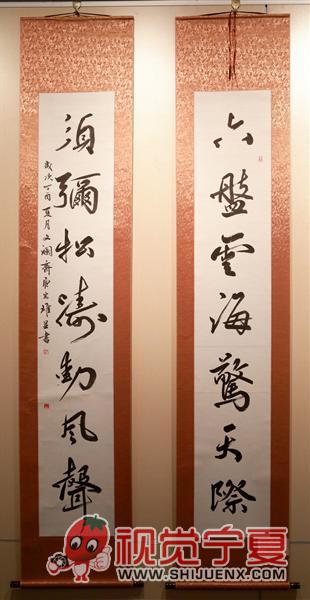 六盤雲海驚天際
須彌松濤動風聲
歲次丁酉夏月文瀾齋
視觉宁夏
WWW.SHIJUENX.COM